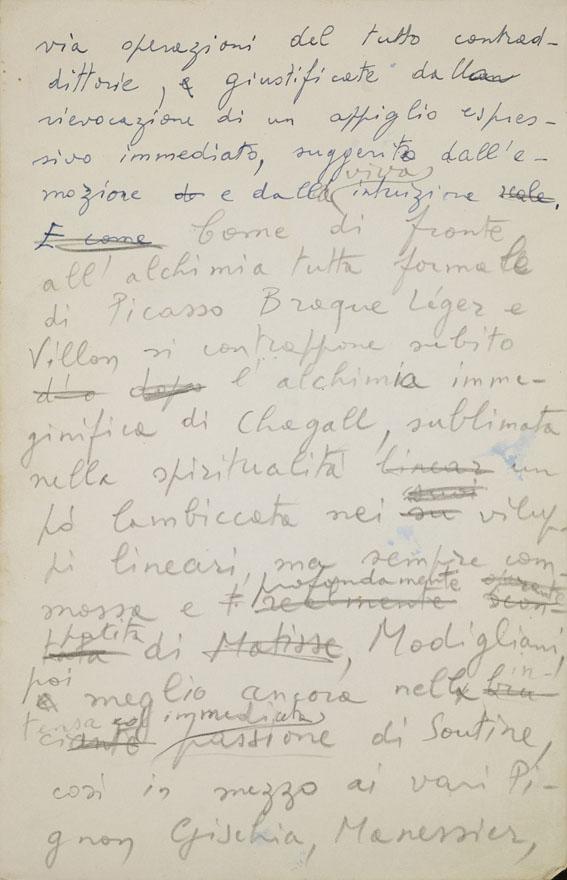 via operazioni del tutto contrad-
dittorie, e giustificate dallau
rievocazione di un appiglio espres-
sivo immediato, suggerito dall'e-
viva
mozione do e dalla intuizione reale.
E come Come di fronte
all'alchimia tutta formale
di Picasso Braque Léger e
Villon si contrappone subito
dopo l'alchimia imma-
ginifica di Chagall, sublimata
nella spiritualità linear un
suoi
pò lambiccata nei su vilup-
pi lineari, ma sempre com-
profondamente
mossa e realmente scon-
patita
tata di Matisse, Modigliani,
poi in-
e meglio ancora nella bru-
tensa ed immediata
ciante passione di Soutine,
così in mezzo ai vari Pi-
gnon Gischia, Manessier,